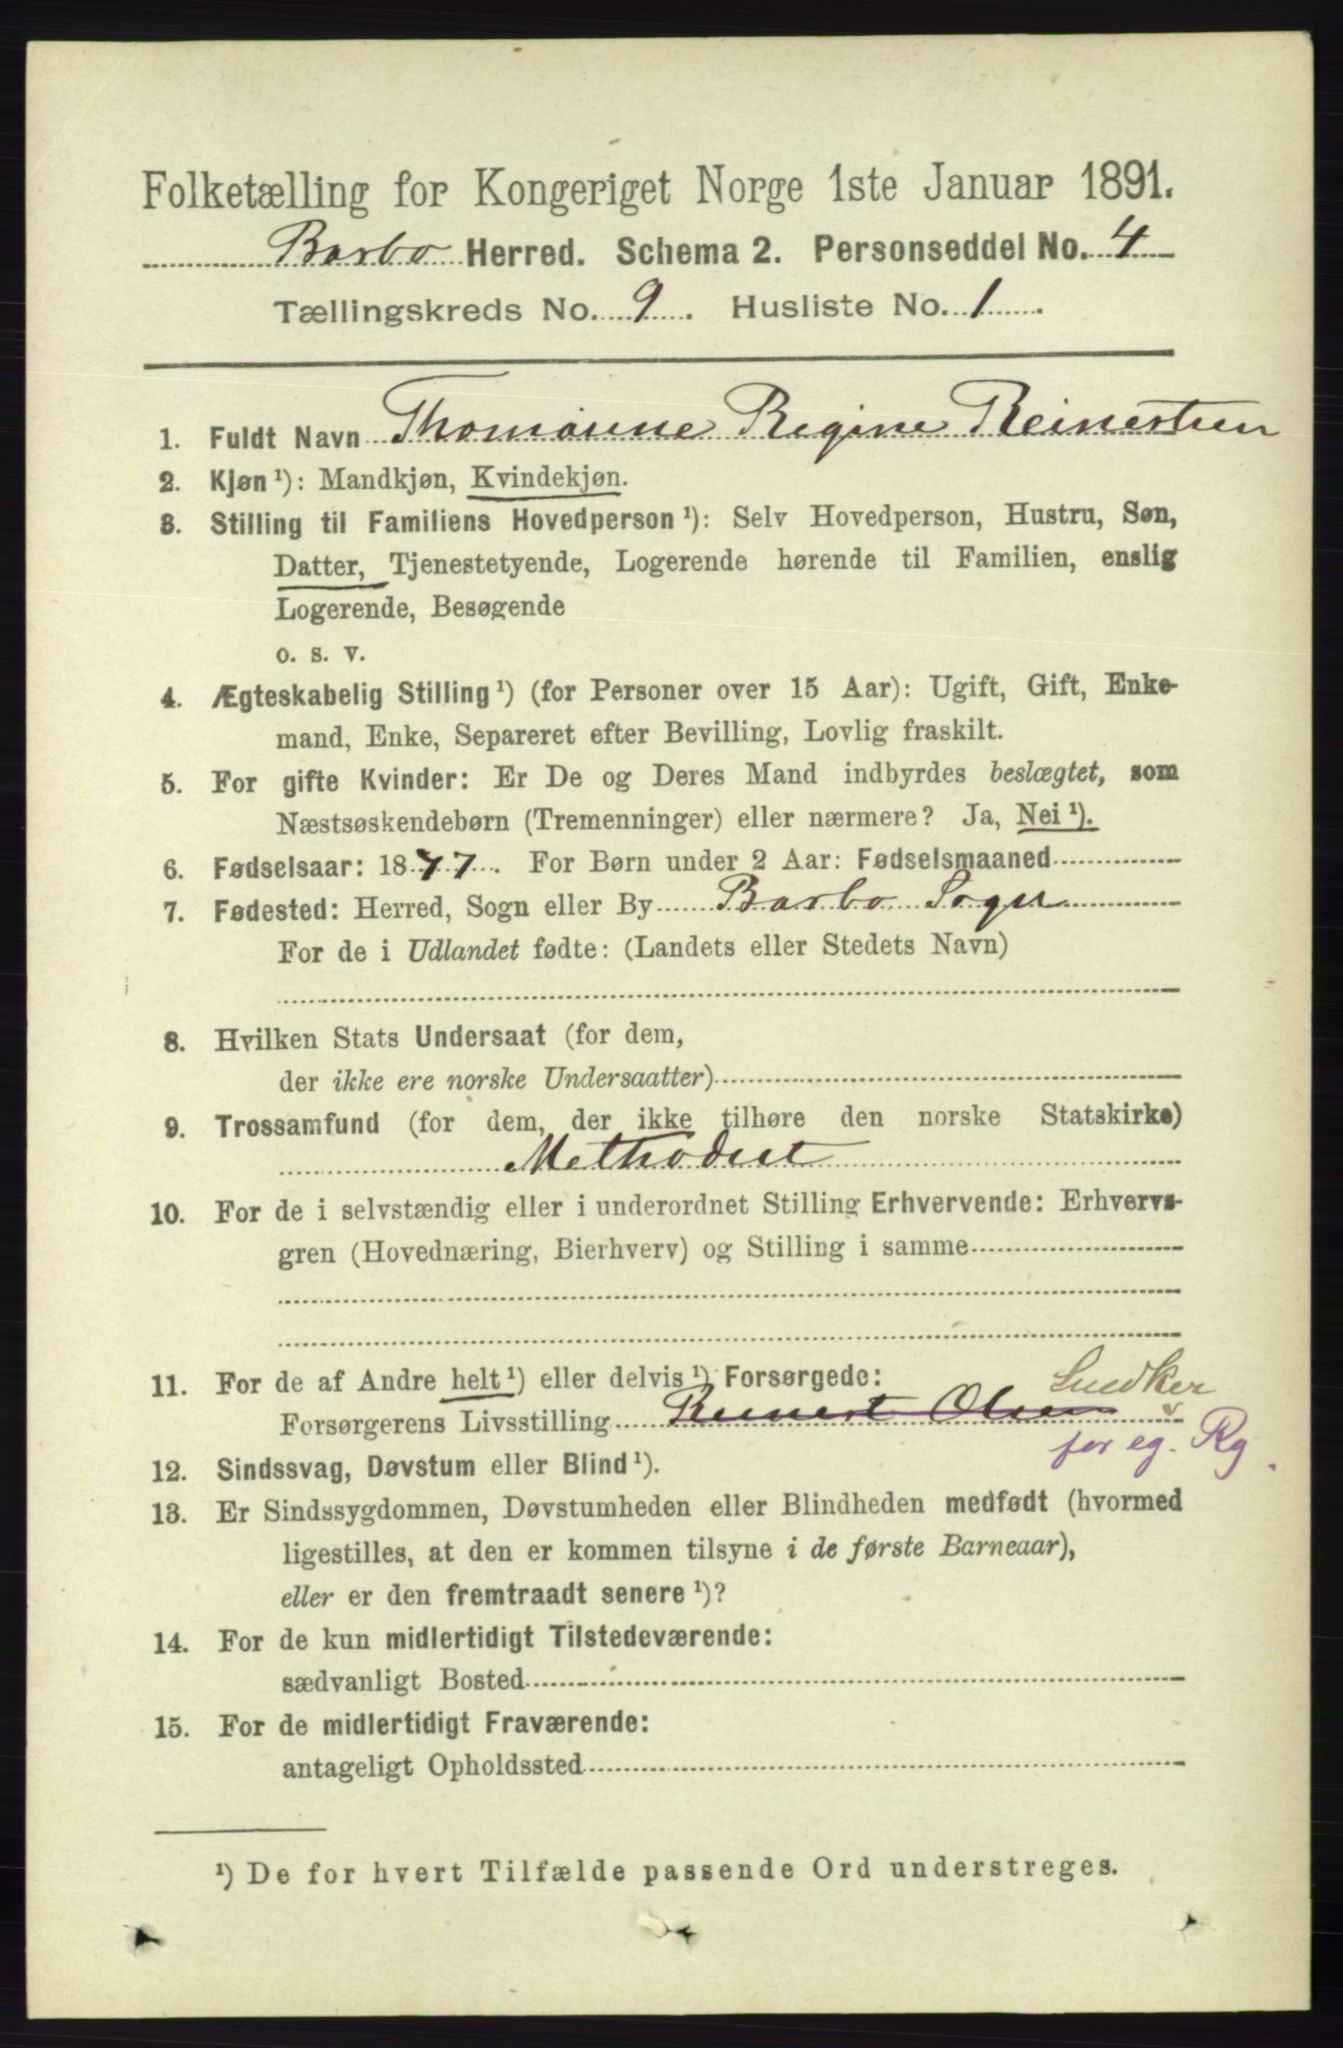 Folketælling for Kongeriget Norge 1ste Januar 1891.
Barbo Herred. Schema 2. Personseddel No. 4
Tællingskreds No. 9. Husliste No. 1.
1. Fuldt Navn Thomasine Regine Reinertsen
2. Kjøn ¹): Mandkjøn, Kvindekjøn.
3. Stilling til Familiens Hovedperson ¹): Selv Hovedperson, Hustru, Søn,
Datter, Tjenestetyende, Logerende hørende til Familien, enslig
Logerende, Besøgende
o. s. v.
4. Ægteskabelig Stilling ¹) (for Personer over 15 Aar): Ugift, Gift, Enke-
mand, Enke, Separeret efter Bevilling, Lovlig fraskilt.
5. For gifte Kvinder: Er De og Deres Mand indbyrdes beslægtet, som
Næstsøskendebørn (Tremenninger) eller nærmere? Ja, Nei ¹).
6. Fødselsaar: 1877. For Børn under 2 Aar: Fødselsmaaned
7. Fødested: Herred, Sogn eller By Barbo Sogn
For de i Udlandet fødte: (Landets eller Stedets Navn)
8. Hvilken Stats Undersaat (for dem,
der ikke ere norske Undersaatter)
9. Trossamfund (for dem, der ikke tilhøre den norske Statskirke)
Methodist
10. For de i selvstændig eller i underordnet Stilling Erhvervende: Erhvervs-
gren (Hovednæring, Bierhverv) og Stilling i samme
11. For de af Andre helt ¹) eller delvis ¹) Forsørgede: Snedker
Forsørgerens Livsstilling Reinert Olsen
for eg. Rg.
12. Sindssvag, Døvstum eller Blind ¹).
13. Er Sindssygdommen, Døvstumheden eller Blindheden medfødt (hvormed
ligestilles, at den er kommen tilsyne i de første Barneaar),
eller er den fremtraadt senere ¹)?
14. For de kun midlertidigt Tilstedeværende:
sædvanligt Bosted
15. For de midlertidigt Fraværende:
antageligt Opholdssted
¹) De for hvert Tilfælde passende Ord understreges.